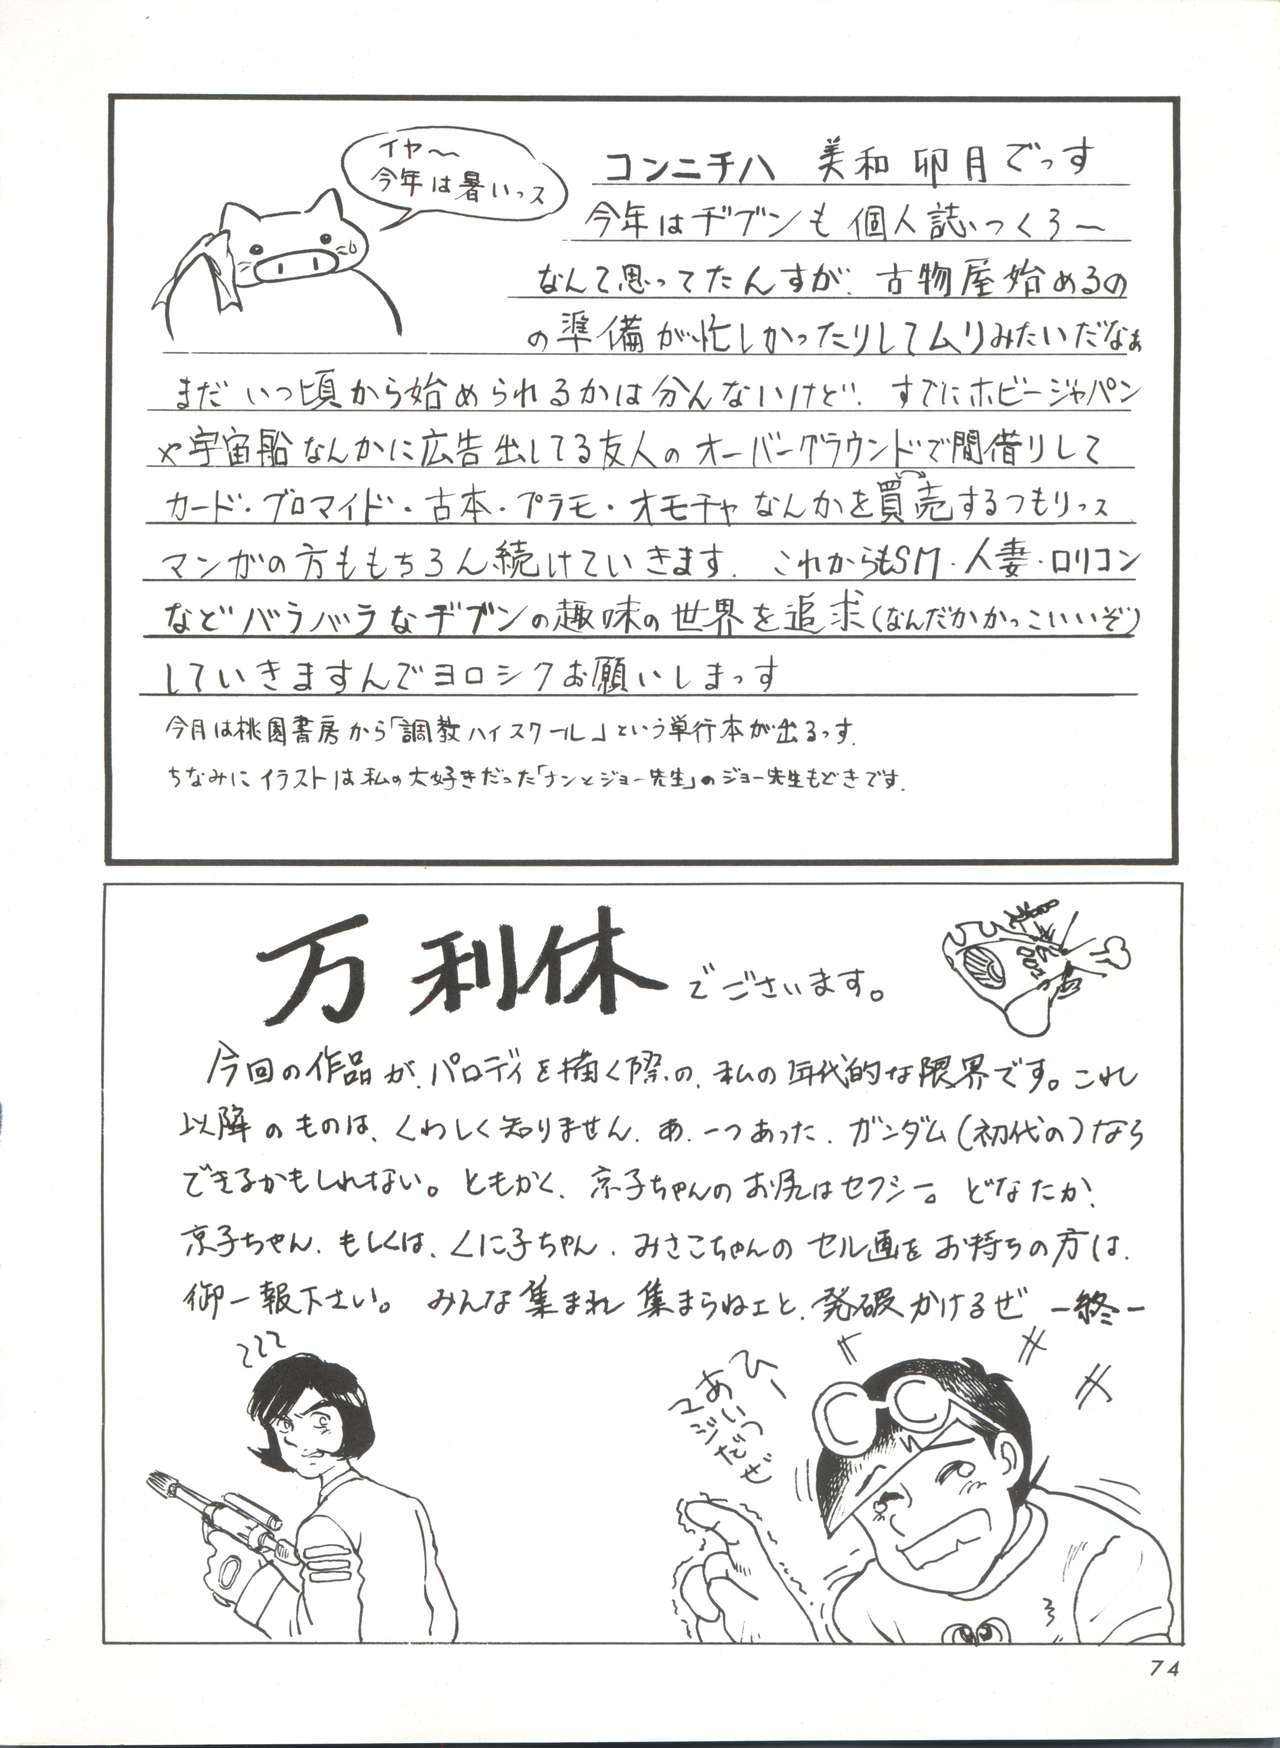 イヤ〜
今年は暑いっス
コンニチハ 美和卯月でっす
今年はヂブンも個人誌つくろ〜
なんて思ってたんすが、古物屋始めるの
の準備が忙しかったりしてムリみたいだなぁ
まだいつ頃から始められるかは分んないけど、すでにホビージャパン
や宇宙船なんかに広告出してる友人のオーバーグラウンドで間借りして
カード・ブロマイド・古本・プラモ・オモチャなんかを買売するつもりっス
マンガの方ももちろん続けていきます。これからもSM・人妻・ロリコン
などバラバラなヂブンの趣味の世界を追求(なんだかかっこいいぞ)
していきますんでヨロシクお願いしまっす
今月は桃園書房から「調教ハイスクール」という単行本が出るっす。
ちなみにイラストは私の大好きだった「ナンとジョー先生」のジョー先生もどきです。
万利休でございます。
今回の作品が、パロディを描く際の、私の年代的な限界です。これ
以降のものは、くわしく知りません。あ、一つあった。ガンダム(初代の)なら
できるかもしれない。ともかく、京子ちゃんのお尻はセクシー。どなたか、
京子ちゃん、もしくは、くに子ちゃん、みさこちゃんのセル画をお持ちの方は、
御一報下さい。みんな集まれ 集まらねェと、発破かけるぜ ー終ー
ひー
あいつ
マジだぜ
74